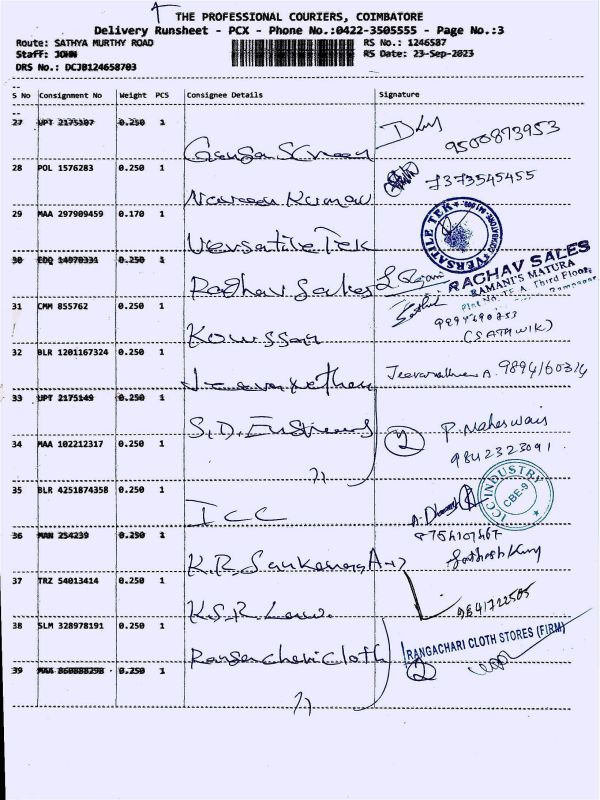 THE PROFESSIONAL COURIERS, COIMBATORE
Delivery Runsheet - PCX - Phone No.:0422-3505555 - Page No.:3
Route: SATHYA MURTHY ROAD RS No.: 1246587
Staff: JOHN RS Date: 23-Sep-2023
DRS No.: DCJB124658703
S No Consignment No Weight PCS Consignee Details Signature
27 UPT 2175107 0.250 1
9500873953
28 POL 1576283 0.250 1
Naveen Kumar 7373545455
29 MAA 297909459 0.170 1
Versatile Tek VERSATILE TEK
30 EDQ 14970331 0.250 1
Raghav Sales RAGHAV SALES
RAMANI'S MATURA
Third Floor,
31 CMM 855762 0.250 1
Kowssar (SATHWIK)
32 BLR 1201167324 0.250 1
A. 9894160314
33 UPT 2175149 0.250 1
P. Maheswari
34 MAA 102212317 0.250 1
9842323091
35 BLR 4251874358 0.250 1
ICC ICC INDUSTRY CBE-9
36 MAN 254239 0.250 1
K.R.
37 TRZ 54013414 0.250 1
K.S.R. Law.
38 SLM 328978191 0.250 1
RANGACHARI CLOTH STORES (FIRM)
39 MAA 860888298 0.250 1